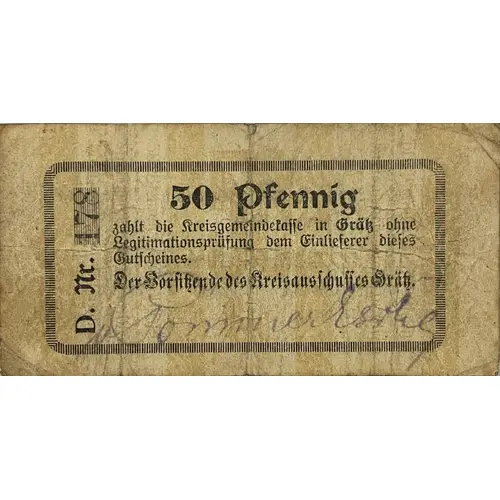 50 Pfennig
zahlt die Kreisgemeindekasse in Grätz ohne
Legitimationsprüfung dem Einlieferer dieses
Gutscheines.
Der Vorsitzende des Kreisausschusses Grätz.
D. Nr. 178